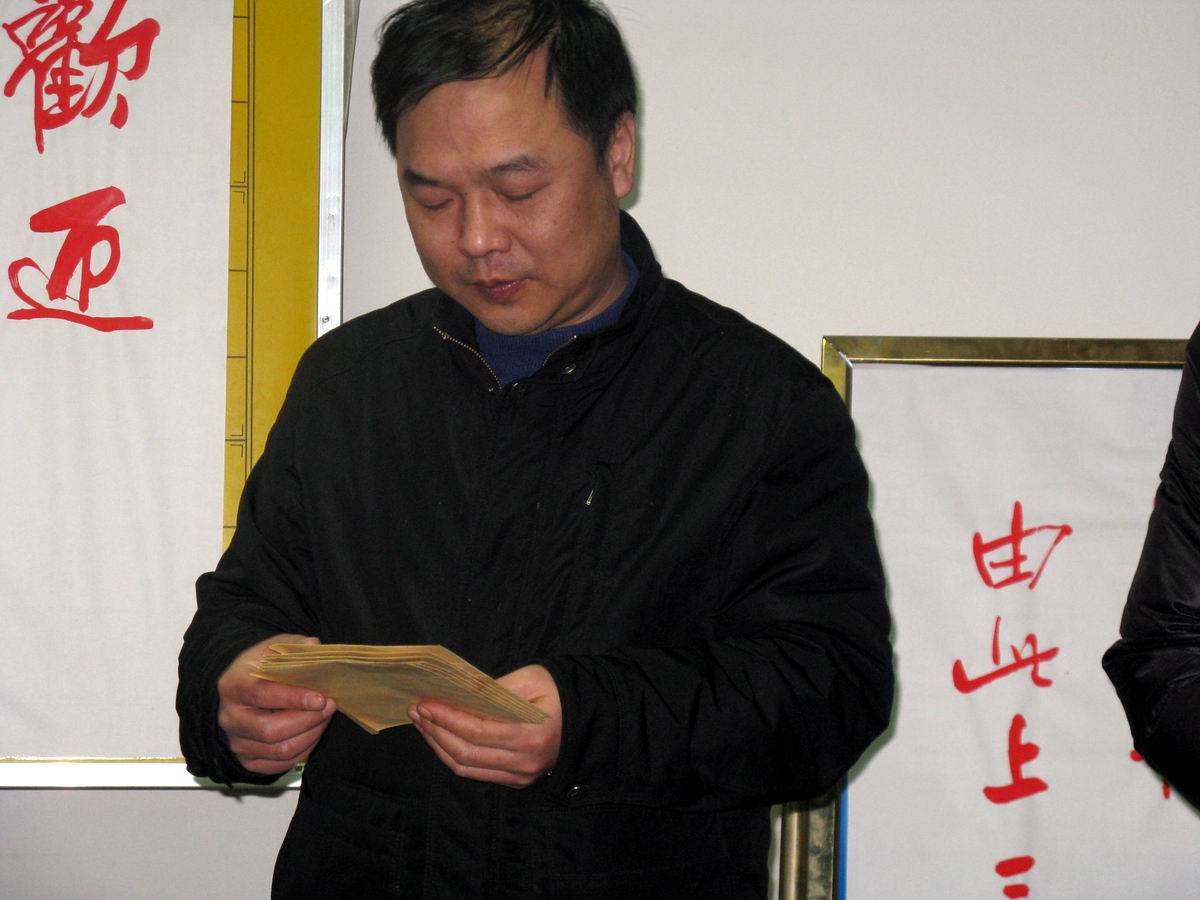 歡迎
由此上三